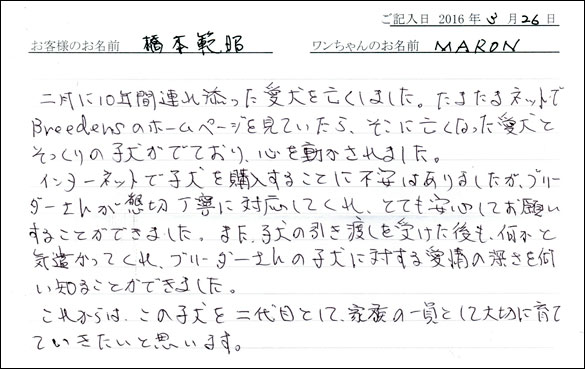 ご記入日 2016 年 3 月 26 日
お客様のお名前 橋本範昭 ワンちゃんのお名前 MARON
二月に10年間連れ添った愛犬を亡くしました。たまたまネットで
Breedersのホームページを見ていたら、そこに亡くなった愛犬と
そっくりの子犬がでており、心を動かされました。
インターネットで子犬を購入することに不安はありましたが、ブリー
ダーさんが懇切丁寧に対応してくれ、とても安心してお願い
することができました。また、子犬の引き渡しを受けた後も、何かと
気遣かってくれ、ブリーダーさんの子犬に対する愛情の深さを伺
い知ることができました。
これからは、この子犬を二代目として、家族の一員として大切に育て
ていきたいと思います。